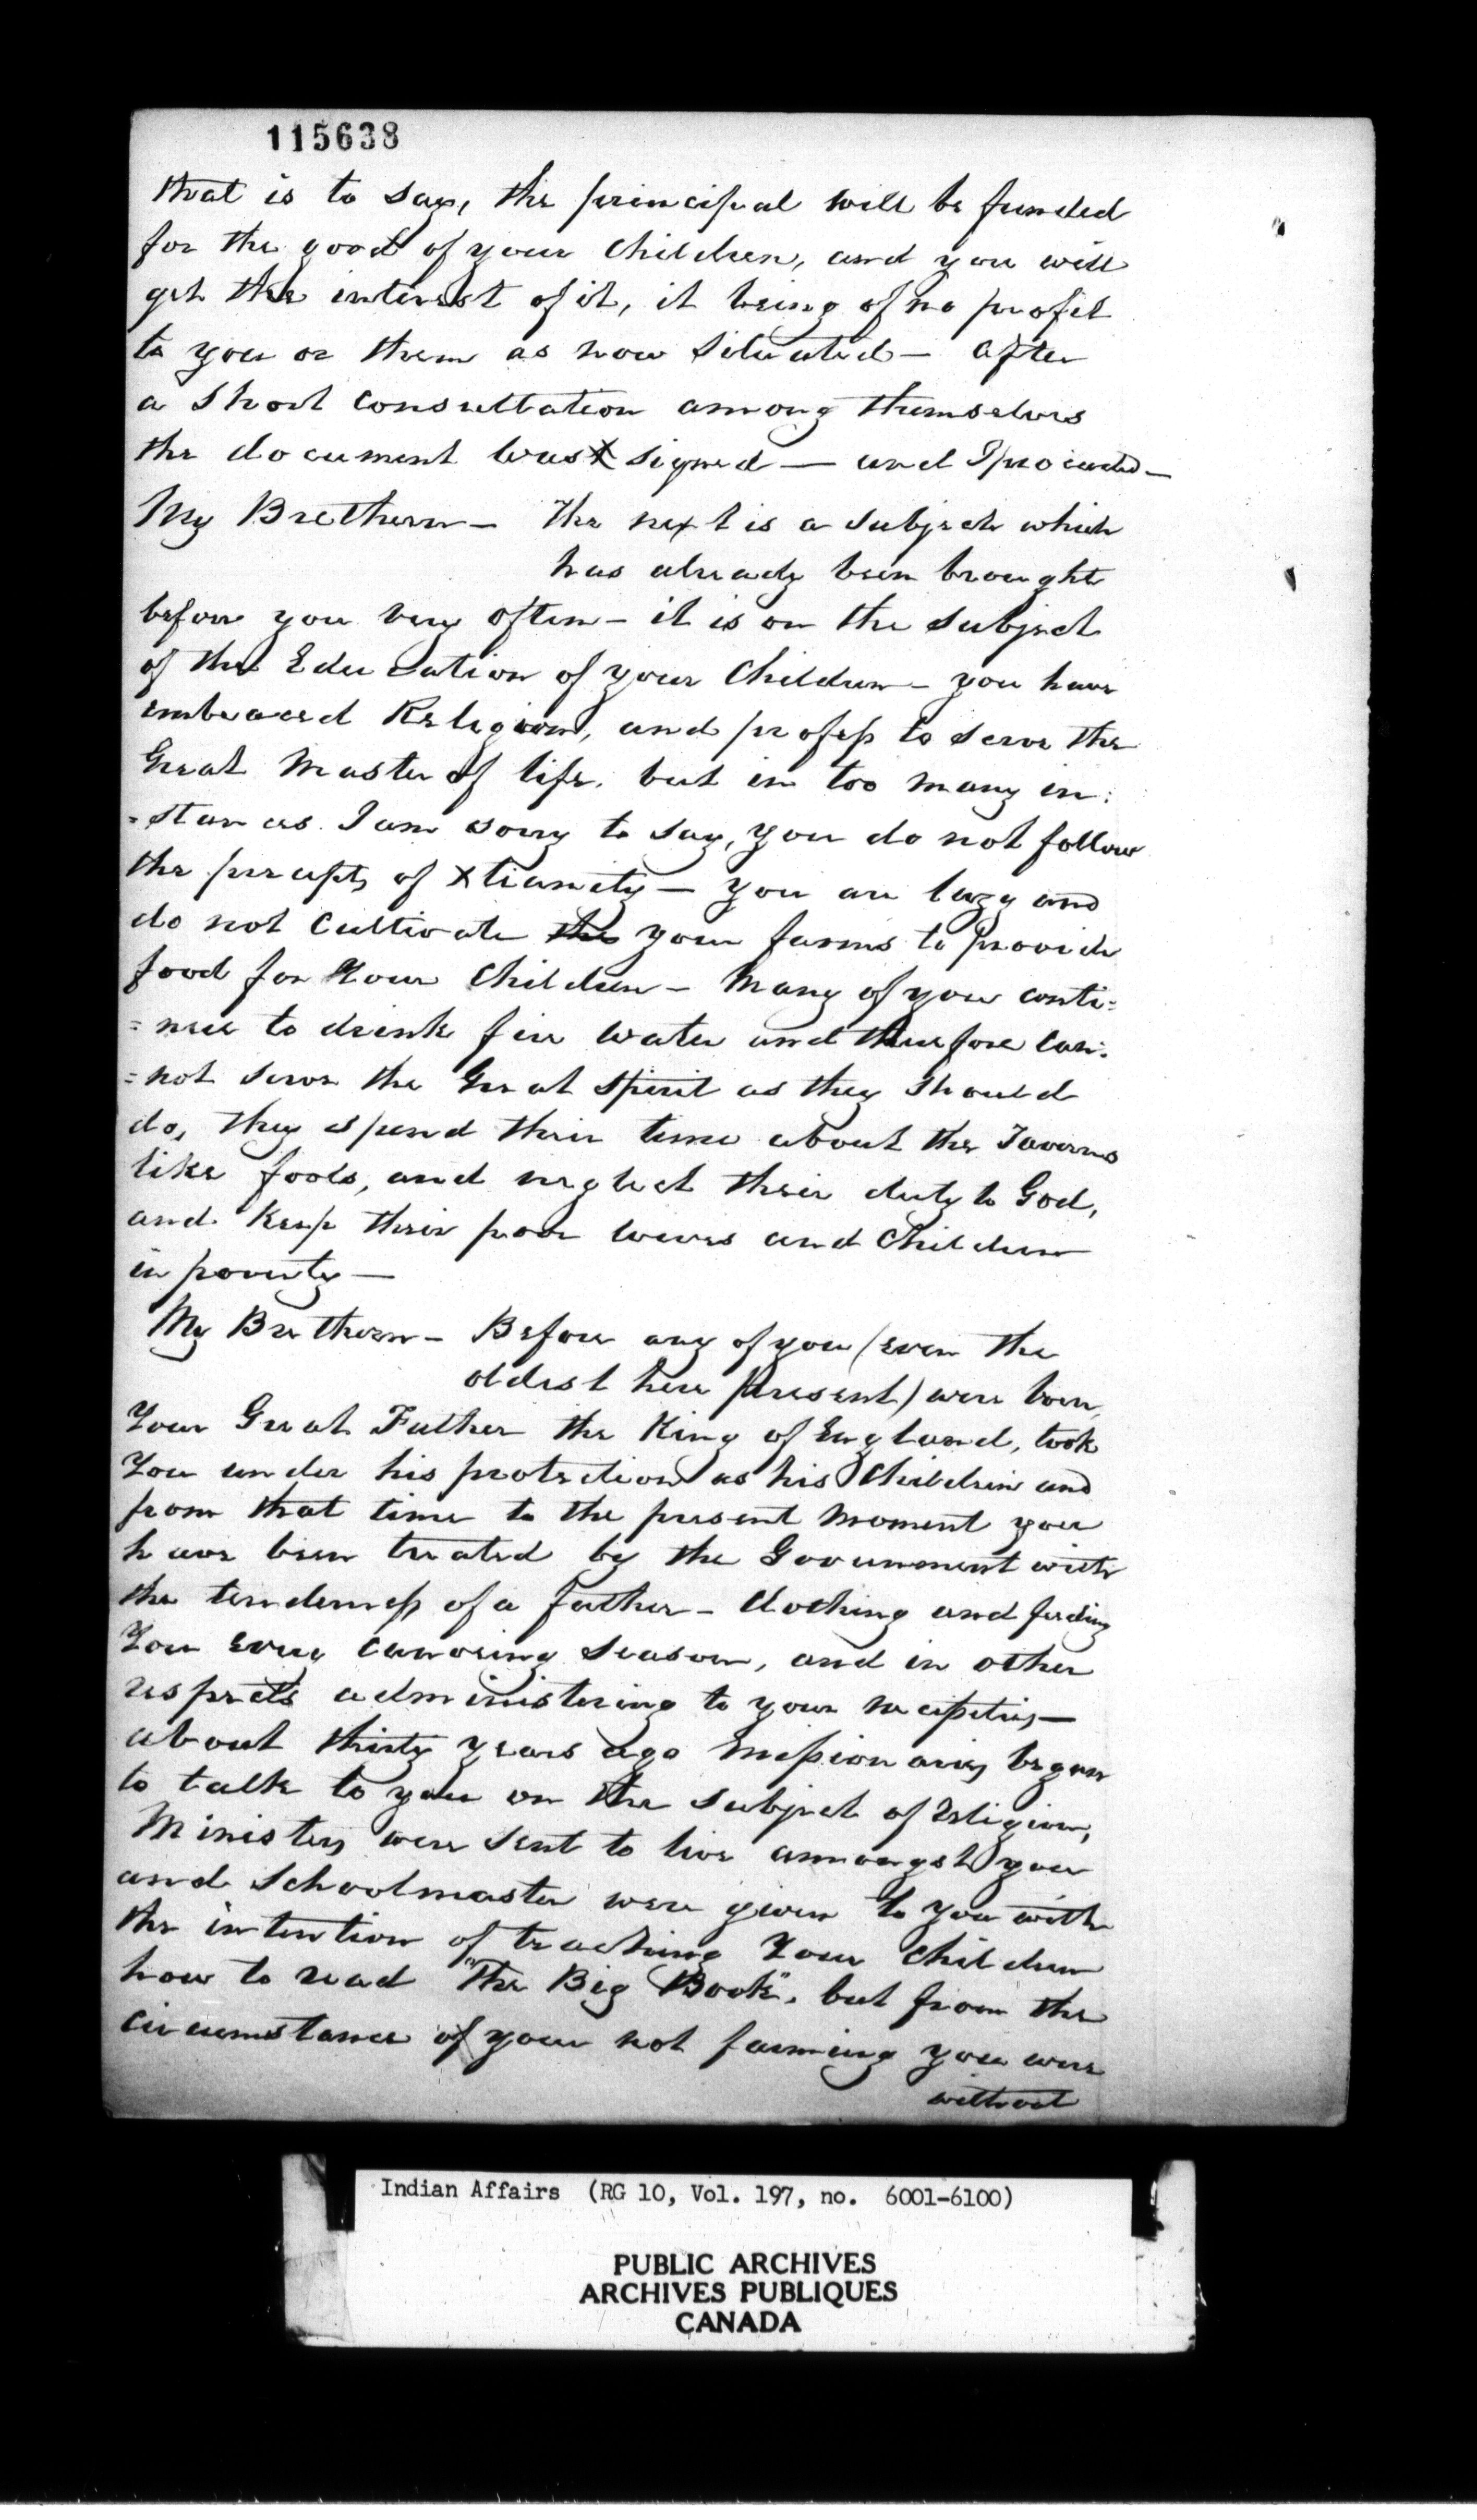 115638
that is to say, the principal will be funded
for the good of your Children, and you will
get the interest of it, it being of no profit
to you or them as now situated — After
a short consultation among themselves
the document was signed — and I proceeded —
My Brethern — The next is a subject which
has already been brought
before you very often — it is on the subject
of the Education of your Children — you have
embraced Religion, and profess to serve the
Great Master of life, but in too many in:
=stances I am sorry to say, you do not follow
the precepts of Xtianity — you are lazy and
do not cultivate the your farms to provide
food for your Children — Many of you conti=
=nue to drink fire water and therefore can:
=not serve the Great Spirit as they should
do, they spend their time about the Taverns
like fools, and neglect their duty to God,
and keep their poor wives and Children
in poverty —
My Brethern — Before any of you (even the
oldest here present) were born,
Your Great Father the King of England, took
You under his protection as his Children and
from that time to the present moment you
have been treated by the Government with
the tenderness of a father — Clothing and feeding
You every canoeing season, and in other
respects administering to your necessities —
about thirty years ago Missionaries began
to talk to you on the subject of religion,
Ministers were sent to live amongst you
and Schoolmaster were given to you with
the intention of teaching Your Children
how to read "The Big Book", but from the
circumstance of your not farming you were
without
Indian Affairs (RG 10, Vol. 197, no. 6001-6100)
PUBLIC ARCHIVES
ARCHIVES PUBLIQUES
CANADA